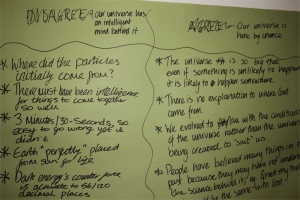 DISAGREE - Our universe has
an intelligent
mind behind it
* Where did the particles
initially come from?
* There must have been intelligence
for things to come together
so well
* 3 Minutes/30-Seconds, so
easy to go wrong yet it
didn't
* Earth "perfectly" placed
from sun for life
* Dark energy's counter force
is accurate to 56/120
decimal places
AGREE - Our universe is
here by chance
* The universe is so big that
even if something is unlikely to happen
it is likely to happen somewhere.
* There is no explanation to where God
came from
* We evolved to live with the conditions
of the universe rather than the universe
being created to "suit" us.
* People have believed many things in the
past because they may have not understood
the science behind it,
be the same with God